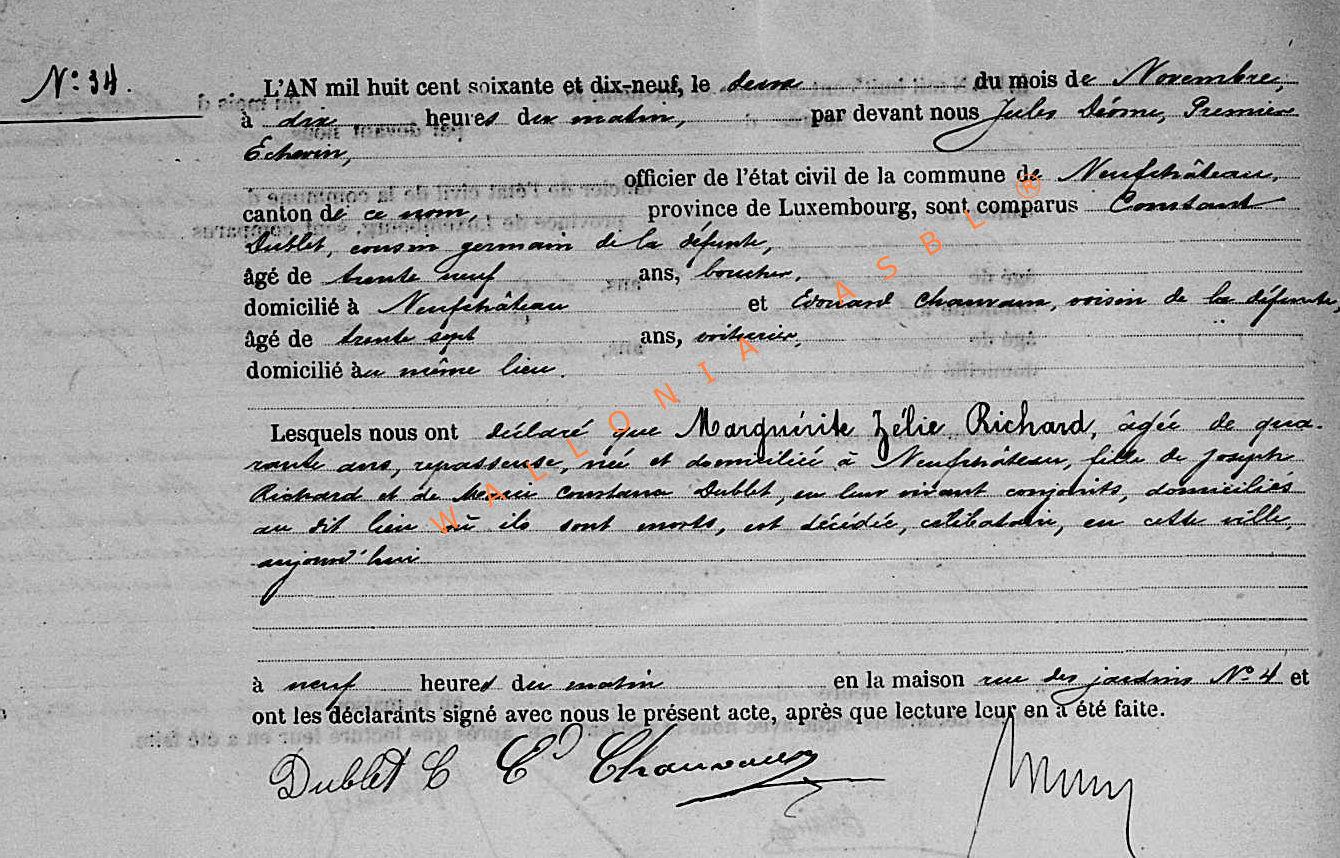 N° 34.
L'AN mil huit cent soixante et dix-neuf, le deux du mois de Novembre,
à dix heures du matin, par devant nous Jules Déome, Premier
Echevin,
officier de l'état civil de la commune de Neufchâteau,
canton de ce nom, province de Luxembourg, sont comparus Constant
Dublet, cousin germain de la défunte,
âgé de trente neuf ans, boucher,
domicilié à Neufchâteau et Edouard voisin de la défunte,
âgé de trente sept ans, voiturier,
domicilié àu même lieu.
Lesquels nous ont déclaré que Marguérite Zélie Richard, âgée de qua-
rante ans, repasseuse, née et domiciliée à Neufchâteau, fille de Joseph
Richard et de Dublet, en leur vivant conjoints, domiciliés
au dit lieu où ils sont morts, est décédée, célibataire, en cette ville
aujourd'hui
à neuf heures du matin en la maison rue des jardins N° 4 et
ont les déclarants signé avec nous le présent acte, après que lecture leur en a été faite.
Dublet C Ed
WALLONIA ASBL ®